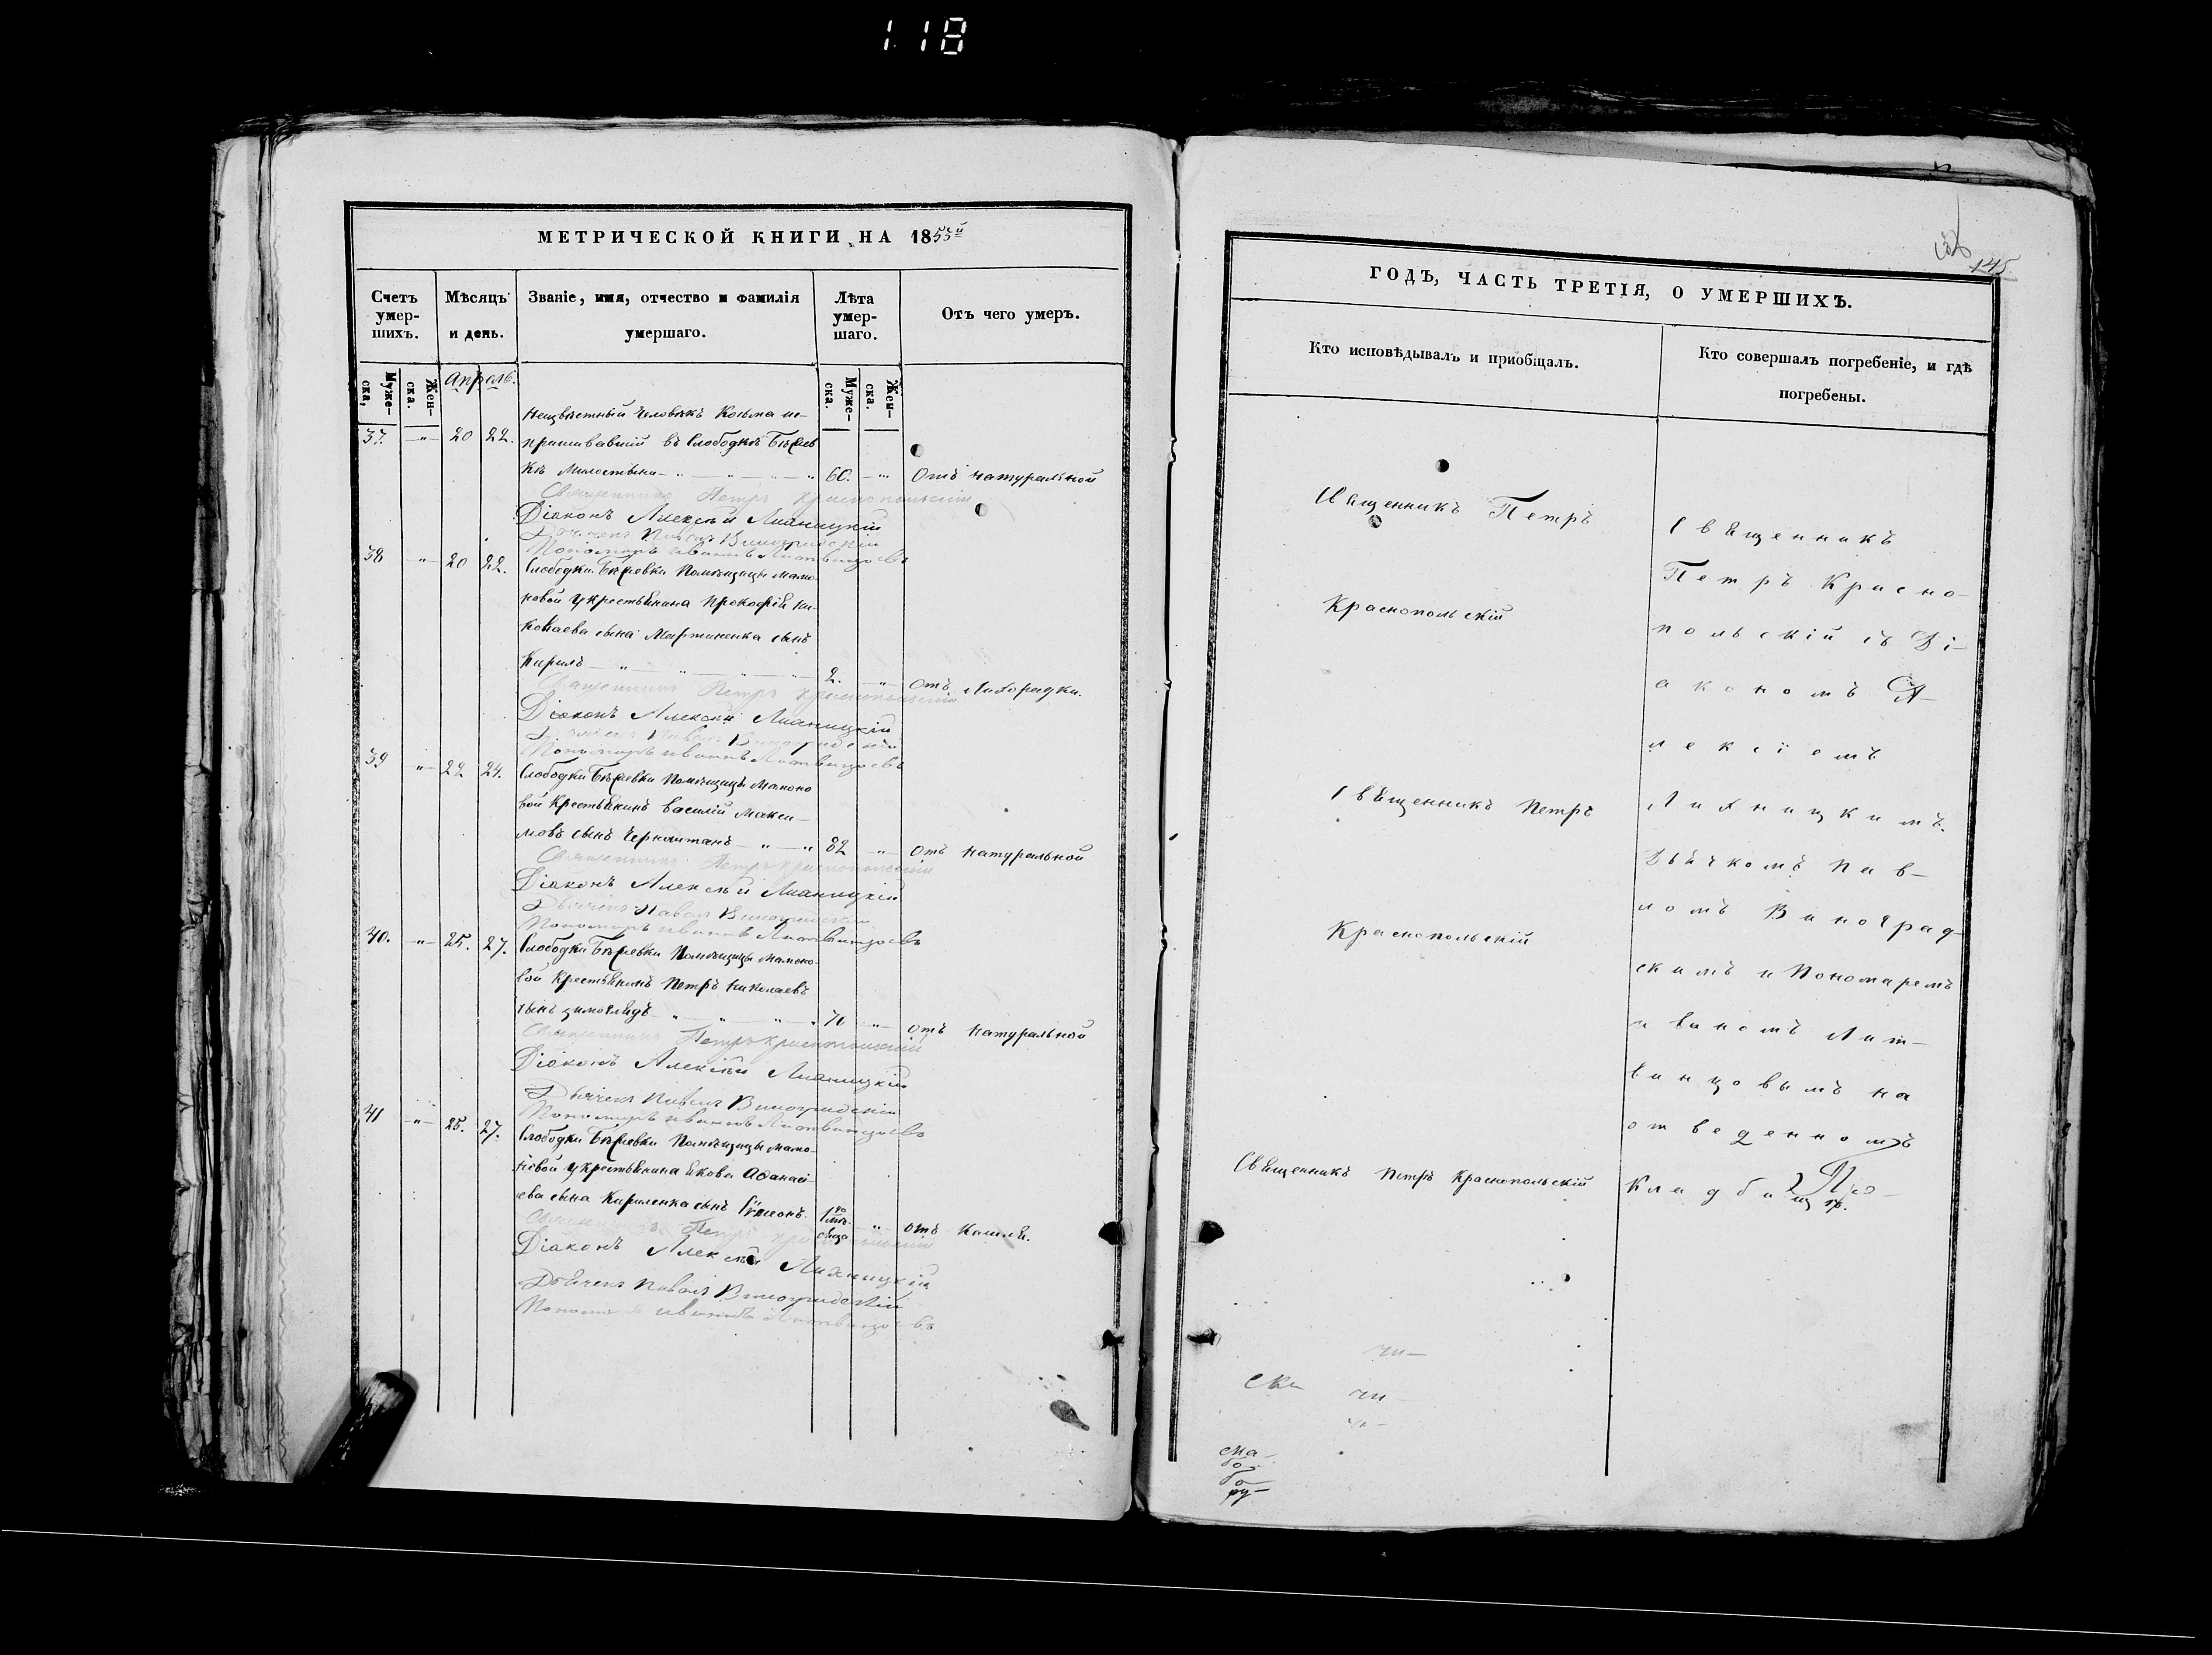 118
МЕТРИЧЕСКОЙ КНИГИ НА 1855й
Счетъ умер-шихъ.
Мѣсяцъ и день.
Званіе, имя, отчество и фамилія умершаго.
Лѣта умер-шаго.
Отъ чего умеръ.
Муже-ска,
Жен-ска.
Апрель.
Муже-ска.
Жен-ска.
Неизвѣстный человѣкъ Козьма ис-
37. — 20 22. прашивавшій въ Слободкѣ
Милостыни 60. Отъ натуральной
Священникъ Петръ Краснопольскій
Діаконъ Алексѣй Лихницкій
Дьячекъ Павелъ Виноградскій
Пономарь Иванъ Литвинцовъ
38 — 20 22. Слободки Помѣщицы Мамо-
новой у крестьянина Прокофія Ни-
колаева сына Мартиненка сынъ
Кирилъ 2. Отъ Лихорадки.
Священникъ Петръ Краснопольскій
Діаконъ Алексѣй Лихницкій
Дьячекъ Павелъ Виноградскій
Пономарь Иванъ Литвинцовъ
39 — 22. 24. Слободки Помѣщицы Мамоно
вой Крестьянинъ Василій Макси-
мовъ сынъ 82 Отъ натуральной
Священникъ Петръ Краснопольскій
Діаконъ Алексѣй Лихницкій
Дьячекъ Павелъ Виноградскій
Пономарь Иванъ Литвинцовъ
40. — 25. 27. Слободки Помѣщицы Мамоно-
вой Крестьянинъ Петръ Николаевъ
сынъ 70 отъ натуральной
Священникъ Петръ Краснопольскій
Діаконъ Алексѣй Лихницкій
Дьячекъ Павелъ Виноградскій
Пономарь Иванъ Литвинцовъ
41 — 25. 27. Слободки Помѣщицы Мамо-
новой у крестьянина Якова Афанась
ева сына Кириленка сынъ отъ Кашля.
Священникъ Петръ Краснопольскій
Діаконъ Алексѣй Лихницкій
Дьячекъ Павелъ Виноградскій
Пономарь Иванъ Литвинцовъ
145.
ГОДЪ, ЧАСТЬ ТРЕТІЯ, О УМЕРШИХЪ.
Кто исповѣдывалъ и приобщалъ.
Кто совершалъ погребеніе, и гдѣ погребены.
Священникъ Петръ
Краснопольскій
Священникъ Петръ
Краснопольскій
Священникъ Петръ Краснопольскій
Священникъ
Петръ Красно-
польскій съ Ді-
акономъ А-
лексіемъ
Лихницкимъ.
Дьячкомъ Пав-
ломъ Виноград-
скимъ и Пономаремъ
Иваномъ Лит-
винцовымъ на
отведенномъ
Кладбищѣ.
чи-
ска чи
чи-
сма-
бо-
бо
ру-